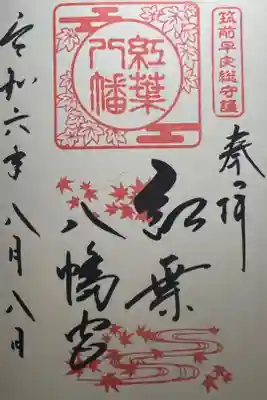 筑前早良総守護
奉拝
紅葉
八幡
紅葉
八幡宮
令和六年八月八日